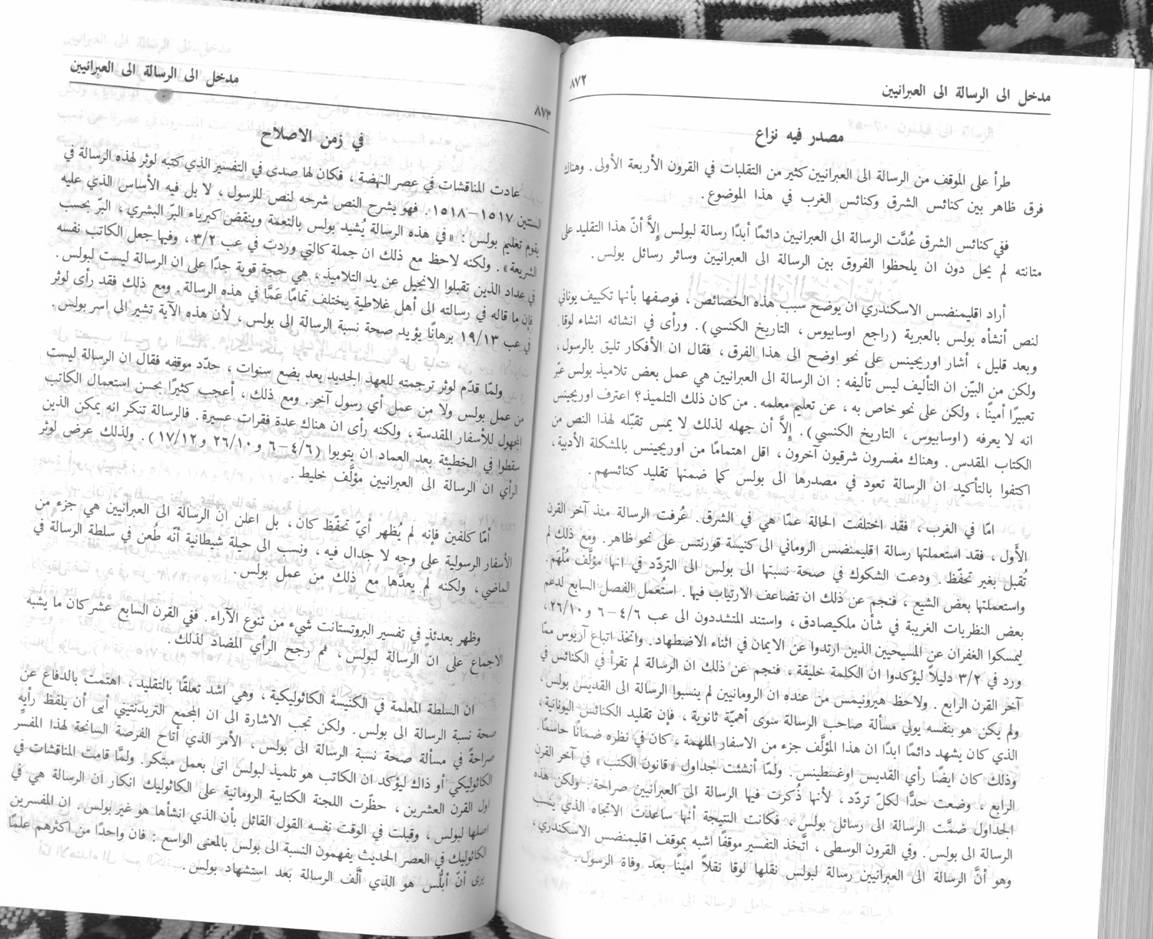 مدخل الى الرسالة الى العبرانيين
٨٧٢
مصدر فيه نزاع
طرأ على الموقف من الرسالة الى العبرانيين كثير من التقلبات في القرون الأربعة الأولى. وهناك
فرق ظاهر بين كنائس الشرق وكنائس الغرب في هذا الموضوع.
ففي كنائس الشرق عُدَّت الرسالة الى العبرانيين دائمًا أبدًا رسالة لبولس إلاَّ أنّ هذا التقليد على
متانته لم يحل دون ان يلحظوا الفروق بين الرسالة الى العبرانيين وسائر رسائل بولس.
أراد اقليمنضس الاسكندري ان يوضح سبب هذه الخصائص، فوصفها بأنها تكييف يوناني
لنص أنشأه بولس بالعبرية (راجع اوسابيوس، التاريخ الكنسي). ورأى في انشائه انشاء لوقا.
وبعد قليل، أشار اوريجينس على نحو اوضح الى هذا الفرق، فقال ان الأفكار تليق بالرسول،
ولكن من البيّن ان التأليف ليس تأليفه: ان الرسالة الى العبرانيين هي عمل بعض تلاميذ بولس عبّر
تعبيرًا أمينًا، ولكن على نحو خاص به، عن تعليم معلمه. من كان ذلك التلميذ؟ اعترف اوريجينس
انه لا يعرفه (اوسابيوس، التاريخ الكنسي). إلاَّ أن جهله لذلك لا يمس تقبّله لهذا النص من
الكتاب المقدس. وهناك مفسرون شرقيون آخرون، اقل اهتمامًا من اوريجينس بالمشكلة الأدبية،
اكتفوا بالتأكيد ان الرسالة تعود في مصدرها الى بولس كما ضمنها تقليد كنائسهم.
امّا في الغرب، فقد اختلفت الحالة عمّا هي في الشرق. عُرفت الرسالة منذ آخر القرن
الأَول، فقد استعملتها رسالة اقليمنضس الروماني الى كنيسة قورنتس على نحو ظاهر. ومع ذلك لم
تُقبل بغير تحفّظ. ودعت الشكوك في صحة نسبتها الى بولس الى التردّد في انها مؤلَّف مُلْهَم.
واستعملتها بعض الشيع، فنجم عن ذلك ان تضاعف الارتياب فيها. استُعمل الفصل السابع لدعم
بعض النظريات الغريبة في شأن ملكيصادق، واستند المتشددون الى عب ٤/٦ - ٦ و ٢٦/١٠،
ليمسكوا الغفران عن المسيحيين الذين ارتدوا عن الايمان في اثناء الاضطهاد. واتخذ اتباع آريوس ممّا
ورد في ٢/٣ دليلاً ليؤكدوا ان الكلمة خليقة، فنجم عن ذلك ان الرسالة لم تقرأ في الكنائس في
آخر القرن الرابع. ولاحظ هيرونيمس من عنده ان الرومانيين لم ينسبوا الرسالة الى القديس بولس،
ولم يكن هو بنفسه يولي مسألة صاحب الرسالة سوى أهميّة ثانوية، فإن تقليد الكنائس اليونانية،
الذي كان يشهد دائمًا ابدًا ان هذا المؤلَّف جزء من الاسفار الملهمة، كان في نظره ضمانًا حاسمًا.
وذلك كان ايضًا رأي القديس اوغسطينس. ولمّا أنشئت جداول «قانون الكتب» في آخر القرن
الرابع، وضعت حدًّا لكلّ تردد، لأنها ذُكرت فيها الرسالة الى العبرانيين صراحة. ولكن هذه
الجداول ضمَّت الرسالة الى رسائل بولس، فكانت النتيجة أنها ساعدت الاتجاه الذي ينسب
الرسالة الى بولس. وفي القرون الوسطى، اتَّخذ التفسير موقفًا أشبه بموقف اقليمنضس الاسكندري،
وهو أنَّ الرسالة الى العبرانيين رسالة لبولس نقلها لوقا نقلاً امينًا بعد وفاة الرسول.
مدخل الى الرسالة الى العبرانيين
٨٧٣
في زمن الاصلاح
عادت المناقشات في عصر النهضة، فكان لها صدى في التفسير الذي كتبه لوثر لهذه الرسالة في
السنتين ١٥١٧-١٥١٨. فهو يشرح النص شرحه لنص للرسول، لا بل فيه الأساس الذي عليه
يقوم تعليم بولس: «في هذه الرسالة يُشيد بولس بالنعمة وينقض كبرياء البرّ البشري، البرّ بحسب
الشريعة». ولكنه لاحظ مع ذلك ان جملة كالتي وردت في عب ٣/٢، وفيها جعل الكاتب نفسه
في عداد الذين تقبلوا الانجيل عن يد التلاميذ، هي حجة قوية جدًا على ان الرسالة ليست لبولس.
فإن ما قاله في رسالته الى أهل غلاطية يختلف تمامًا عمَّا في هذه الرسالة. ومع ذلك فقد رأى لوثر
في عب ١٩/١٣ برهانًا يؤيد صحة نسبة الرسالة الى بولس، لأن هذه الآية تشير الى اسر بولس.
ولمّا قدّم لوثر ترجمته للعهد الجديد بعد بضع سنوات، حدّد موقفه فقال ان الرسالة ليست
من عمل بولس ولا من عمل أي رسول آخر. ومع ذلك، أعجب كثيرًا بحسن استعمال الكاتب
المجهول للأسفار المقدسة، ولكنه رأى ان هناك عدة فقرات عسيرة. فالرسالة تنكر انه يمكن الذين
سقطوا في الخطيئة بعد العماد ان يتوبوا (٤/٦-٦ و ٢٦/١٠ و ١٧/١٢). ولذلك عرض لوثر
الرأي ان الرسالة الى العبرانيين مؤلَّف خليط.
أمّا كلفين فإنه لم يُظهر أيّ تحفّظ كان، بل اعلن ان الرسالة الى العبرانيين هي جزء من
الأسفار الرسولية على وجه لا جدال فيه، ونسب الى حيلة شيطانية أنّه طُعن في سلطة الرسالة في
الماضي، ولكنه لم يعدَّها مع ذلك من عمل بولس.
وظهر بعدئذٍ في تفسير البروتستانت شيء من تنوع الآراء. ففي القرن السابع عشر كان ما يشبه
الاجماع على ان الرسالة لبولس، ثم رجح الرأي المضاد لذلك.
ان السلطة المعلمة في الكنيسة الكاثوليكية، وهي اشد تعلقًا بالتقليد، اهتمت بالدفاع عن
صحة نسبة الرسالة الى بولس. ولكن تجب الاشارة الى ان المجمع التريدنتيني أبى أن يلفظ رأيه
صراحةً في مسألة صحة نسبة الرسالة الى بولس، الأمر الذي أتاح الفرصة السانحة لهذا المفسر
الكاثوليكي أو ذاك ليؤكد ان الكاتب هو تلميذ لبولس اتى بعمل مبتكر. ولمّا قامت المناقشات في
اول القرن العشرين، حظّرت اللجنة الكتابية الرومانية على الكاثوليك انكار ان الرسالة هي في
اصلها لبولس، وقبلت في الوقت نفسه القول القائل بأن الذي انشأها هو غير بولس. ان المفسرين
الكاثوليك في العصر الحديث يفهمون النسبة الى بولس بالمعنى الواسع: فان واحدًا من اكثرهم علمًا
يرى أنّ أبلُّس هو الذي ألَّف الرسالة بعد استشهاد بولس.